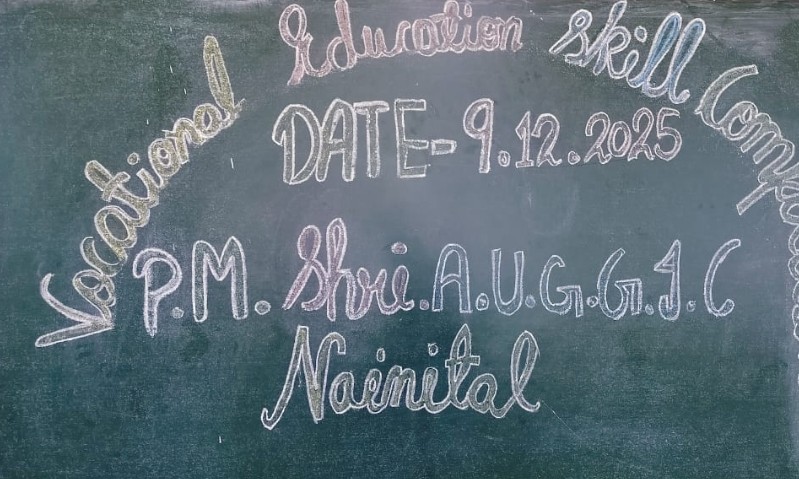 Vocational Education Skill
DATE- 9.12.2025
P.M. Shri.A.U.G.G.I.C
Nainital